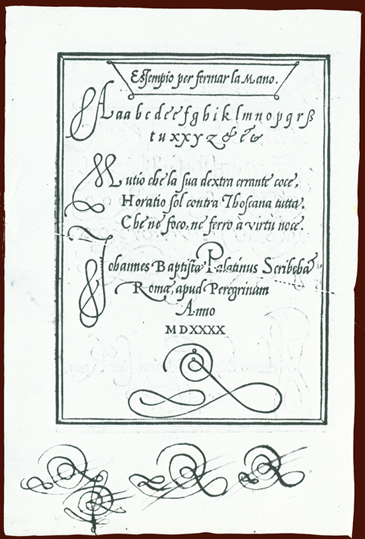 Essempio per fermar la Mano.
A a a b c d e e f g h i k l m n o p q r ß
t u x x y z & & &
Mutio che la sua dextra errante coce,
Horatio sol contra Thoscana tutta.
Che nè foco, ne ferro à virtù noce.
Iohannes Baptista Palatinus Scribebā
Romæ apud Peregrinum
Anno
MDXXXX